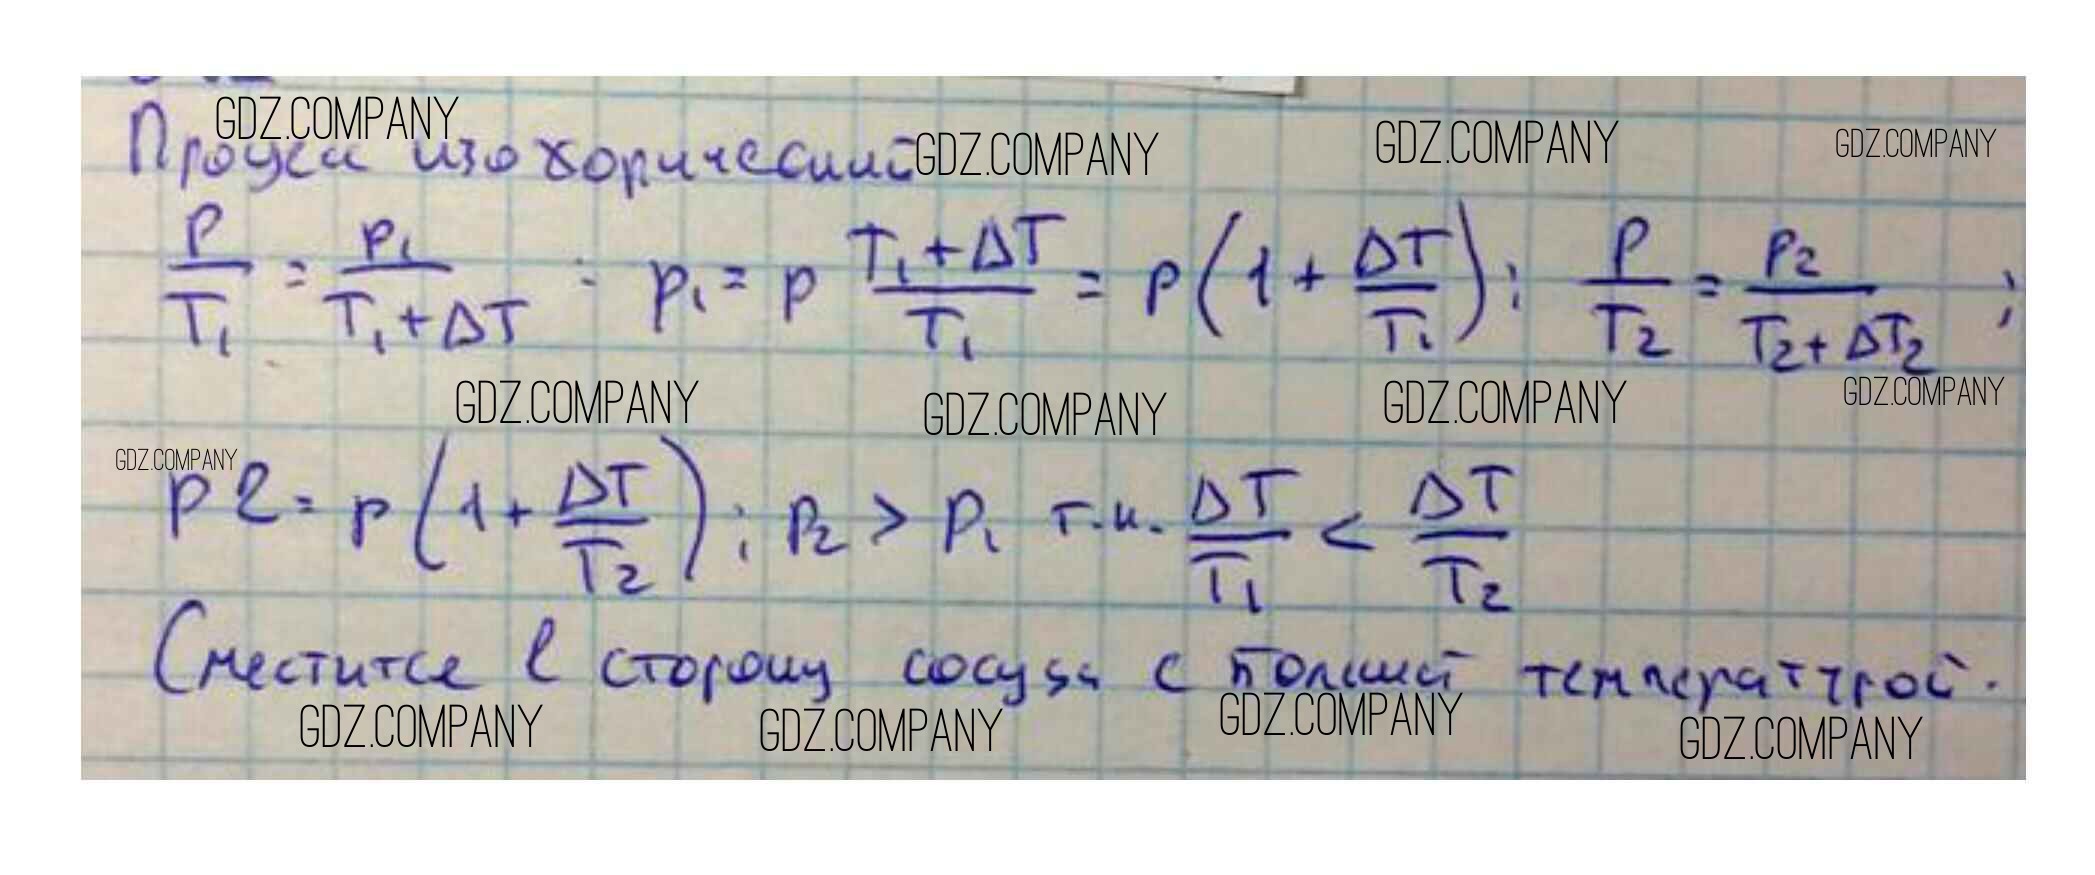 GDZ.COMPANY GDZ.COMPANY GDZ.COMPANY GDZ.COMPANY
Процесс изохорический
p/T₁ = p₁/(T₁+ΔT) : p₁ = p (T₁+ΔT)/T₁ = p(1 + ΔT/T₁); p/T₂ = p₂/(T₂+ΔT₂) ;
GDZ.COMPANY GDZ.COMPANY GDZ.COMPANY GDZ.COMPANY
GDZ.COMPANY
p2 = p(1 + ΔT/T₂); p₂ > p₁ т.к. ΔT/T₁ < ΔT/T₂
Сместится в сторону сосуда с большей температурой.
GDZ.COMPANY GDZ.COMPANY GDZ.COMPANY GDZ.COMPANY